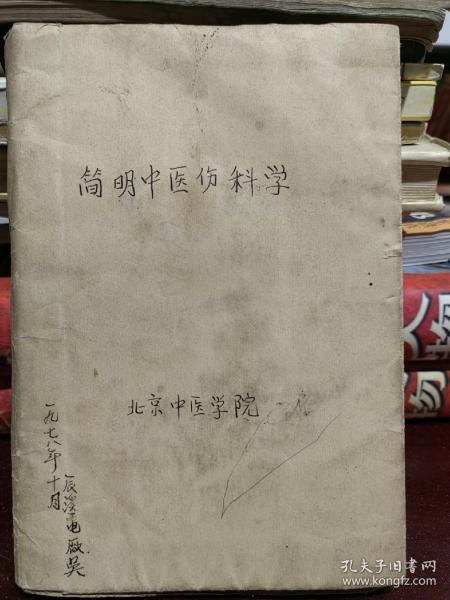 简明中医伤科学
北京中医学院
一九七八年十月
辰溪电厂吴
人物
物
孔夫子旧书网
www.kongfz.com